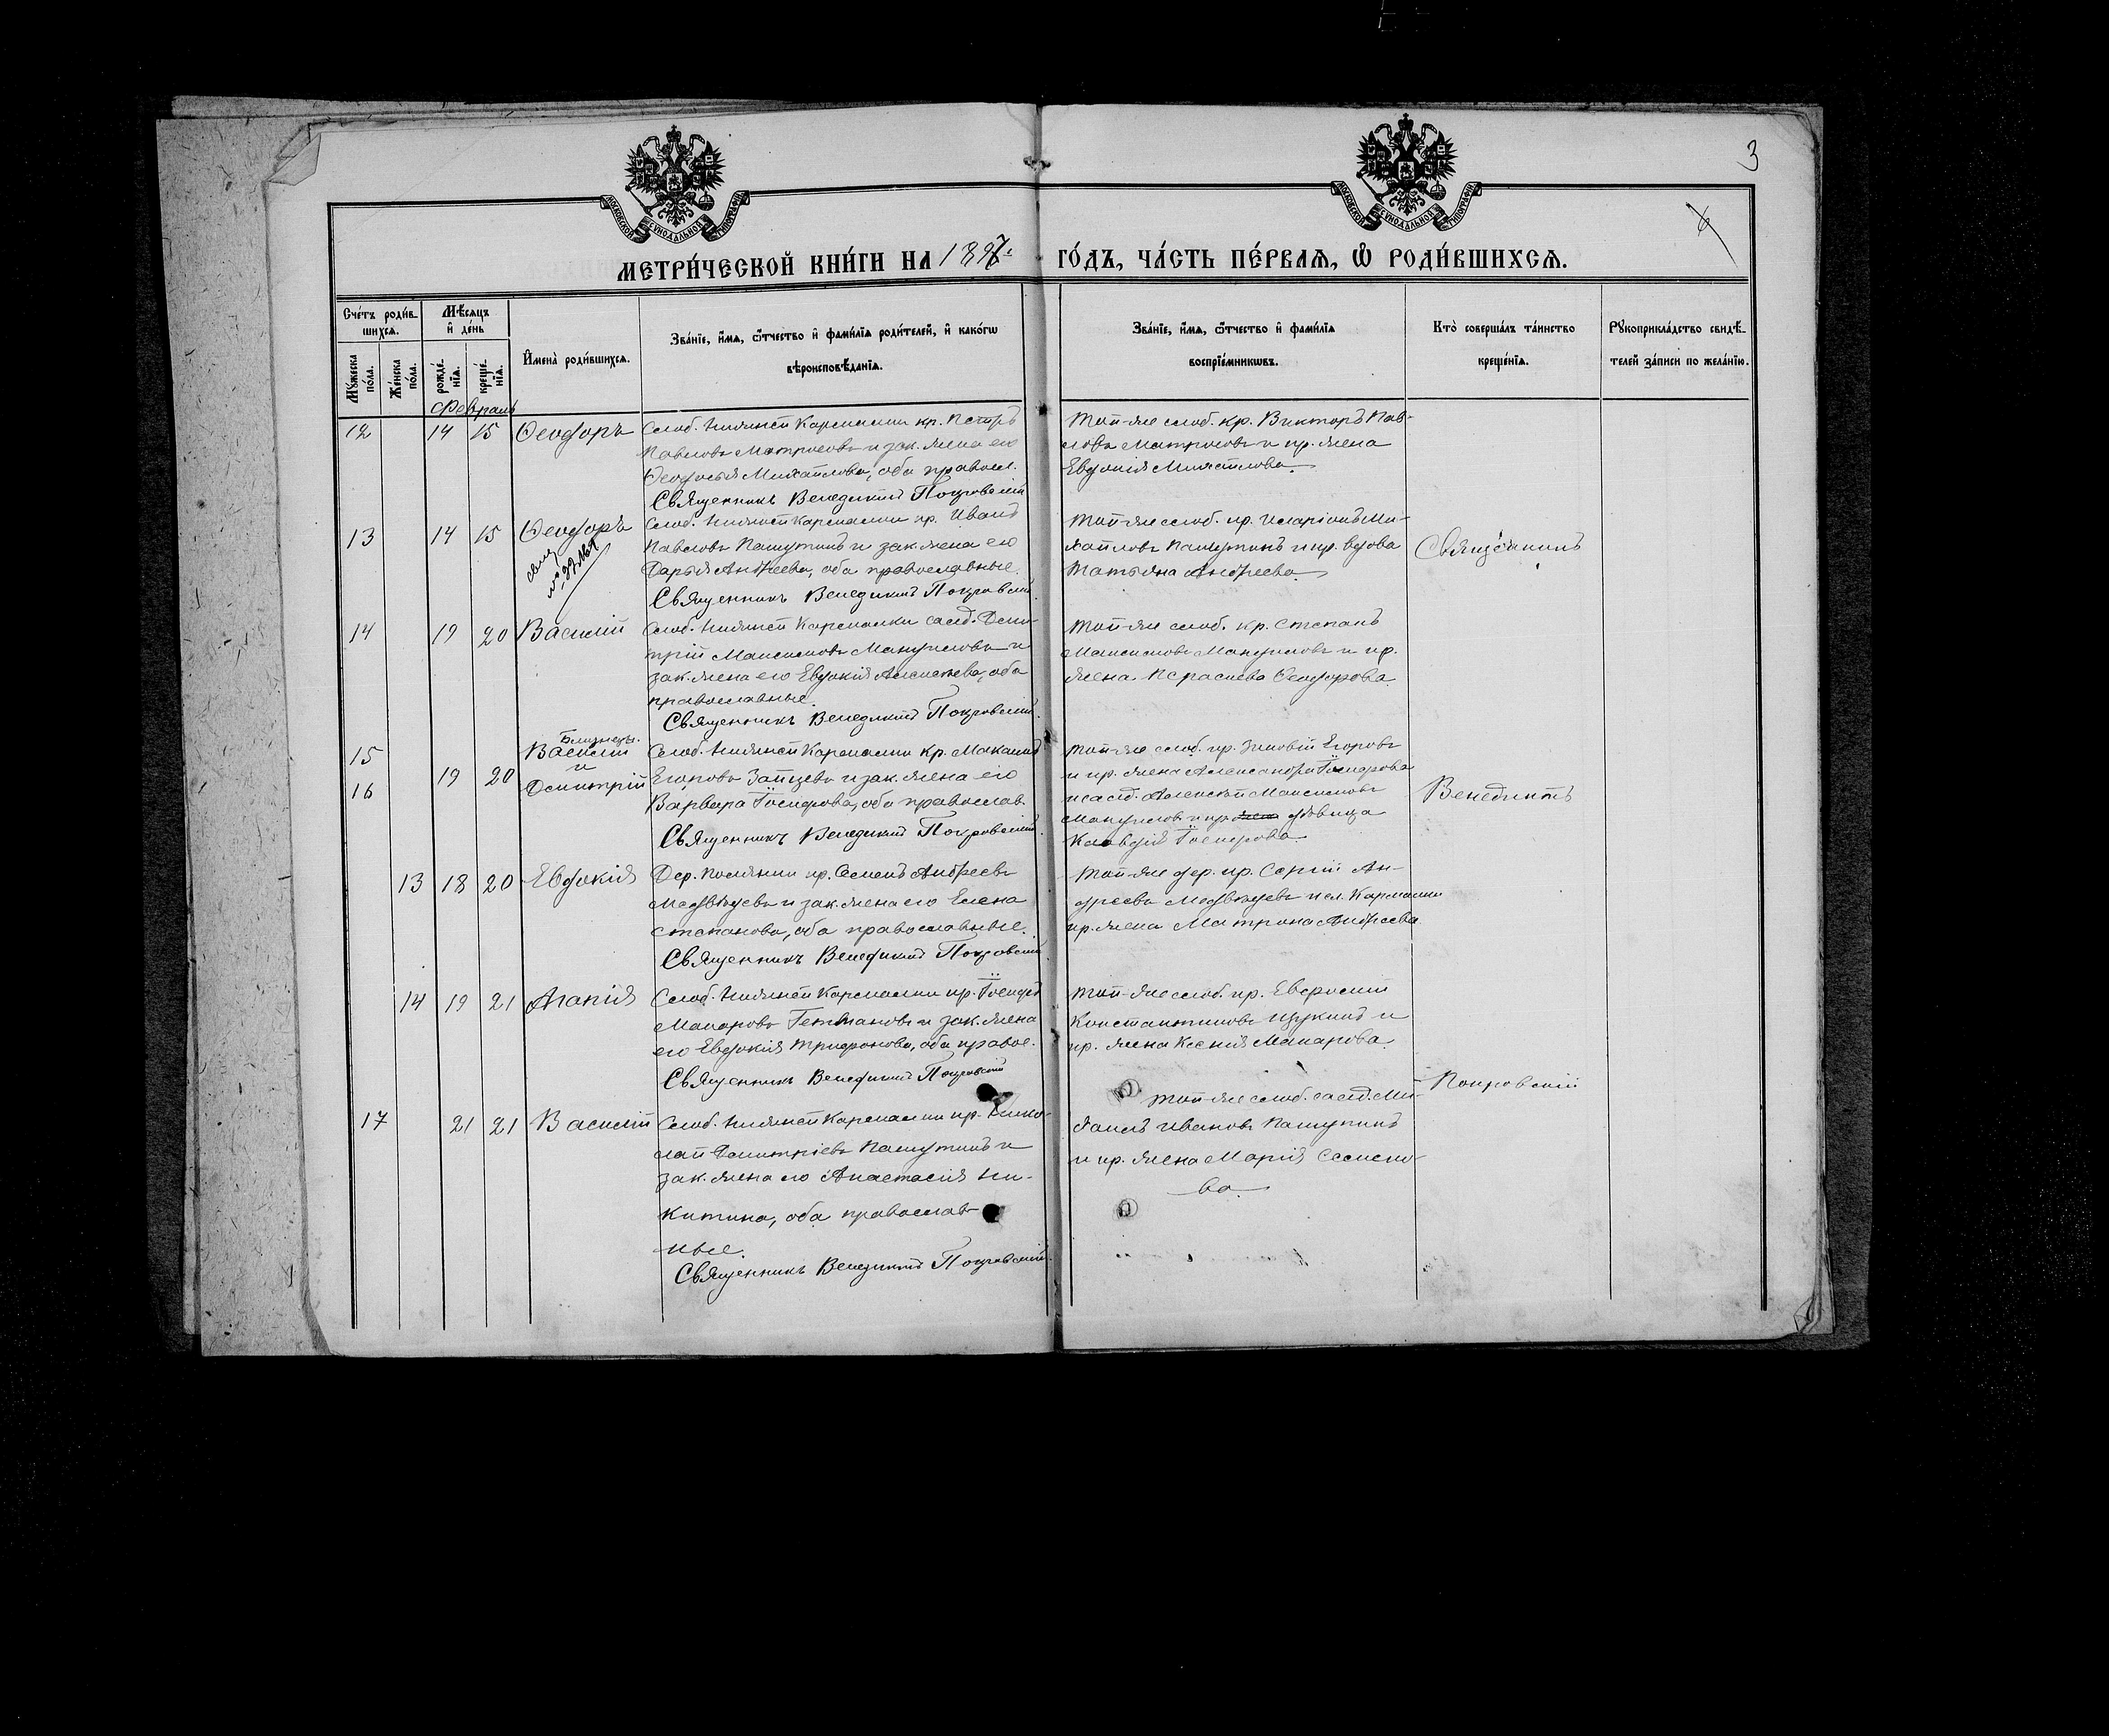 3
МОСКОВСКОЙ СѴНОДАЛЬНОЙ ТИПОГРАФІИ
МОСКОВСКОЙ СѴНОДАЛЬНОЙ ТИПОГРАФІИ
МЕТРИ́ЧЕСКОЙ КНИ́ГИ НА 1897 ГО́ДЪ, ЧА́СТЬ ПЕ́РВАѦ, Ѡ҆ РОДИ́ВШИХСѦ.
Сче́тъ роди́в-
шихсѧ.
Мꙋ́жеска по́ла.
Же́нска по́ла.
Мѣ́сѧцъ
и҆ де́нь
рожде́-
нїѧ.
креще́-
нїѧ.
И҆мена̀ роди́вшихсѧ.
Зва́нїе, и҆́мѧ, ѻ҆́тчество и҆ фами́лїѧ роди́телей, и҆ како́гѡ
вѣроисповѣ́данїѧ.
Зва́нїе, и҆́мѧ, ѻ҆́тчество и҆ фами́лїѧ
воспрїе́мникѡвъ.
Кто̀ соверша́лъ та́инство
креще́нїѧ.
Рꙋкоприкла́дство свидѣ́-
телей за́писи по жела́нїю.
Февраль
12 14 15 Ѳеодоръ
Слоб. Нижней Кармалки кр. Петръ
Павловъ Матросовъ и зак. жена его
Ѳеодосія Михайлова, оба правосл.
Священникъ Венедиктъ Покровскій
Той-же слоб. кр. Викторъ Пав-
ловъ Матросовъ и кр. жена
Евдокія Михайлова.
13 14 15 Ѳеодоръ
Слоб. Нижней Кармалки кр. Иванъ
Павловъ Пашутинъ и зак. жена его
Дарья Андреева, оба православные.
Священникъ Венедиктъ Покровскій
Той-же слоб. кр. Иларіонъ Ми-
хайловъ Пашутинъ и кр. вдова
Татьяна Андреева.
Священникъ
14 19 20 Василій
Слоб. Нижней Кармалки солд. Дими-
трій Максимовъ Мануиловъ и
зак. жена его Евдокія Алексѣева, оба
православные.
Священникъ Венедиктъ Покровскій.
Той-же слоб. кр. Степанъ
Максимовъ Мануиловъ и кр.
жена Параскева Ѳеодорова
15
16
19 20
Близнецы.
Василій
и
Димитрій
Слоб. Нижней Кармалки кр.
Егоровъ Зайцевъ и зак. жена его
Варвара Іосифова, оба православ.
Священникъ Венедиктъ Покровскій.
Той-же слоб. кр. Зиновій Егоровъ
и кр. жена Александра Іосифова
и солд. Алексѣй Максимовъ
Мануиловъ и кр. дѣвица
Клавдія
Венедиктъ
13 18 20 Евдокія
Дер. кр. Семенъ Андреевъ
Медвѣдевъ и зак. жена его Елена
Степанова, оба православные.
Священникъ Венедиктъ Покровскій
Той-же дер. кр. Сергій Ан-
дреевъ Медвѣдевъ и сл. Кармалки
кр. жена Матрона Андреева
14 19 21 Агапія
Слоб. Нижней Кармалки кр. Іосифъ
Макаровъ Гетмановъ и зак. жена
его Евдокія Трифонова, оба правос.
Священникъ Венедиктъ Покровскій
Той-же слоб. кр.
Константиновъ и
кр. жена Ксенія Макарова.
Покровскій
17 21 21 Василій
Слоб. Нижней Кармалки кр. Нико-
лай Димитріевъ Пашутинъ и
зак. жена его Анастасія Ни-
китина, оба православ-
ные.
Священникъ Венедиктъ Покровскій.
Той-же слоб. солд. Ми-
хаилъ Ивановъ Пашутинъ
и кр. жена Марія Семено-
ва.